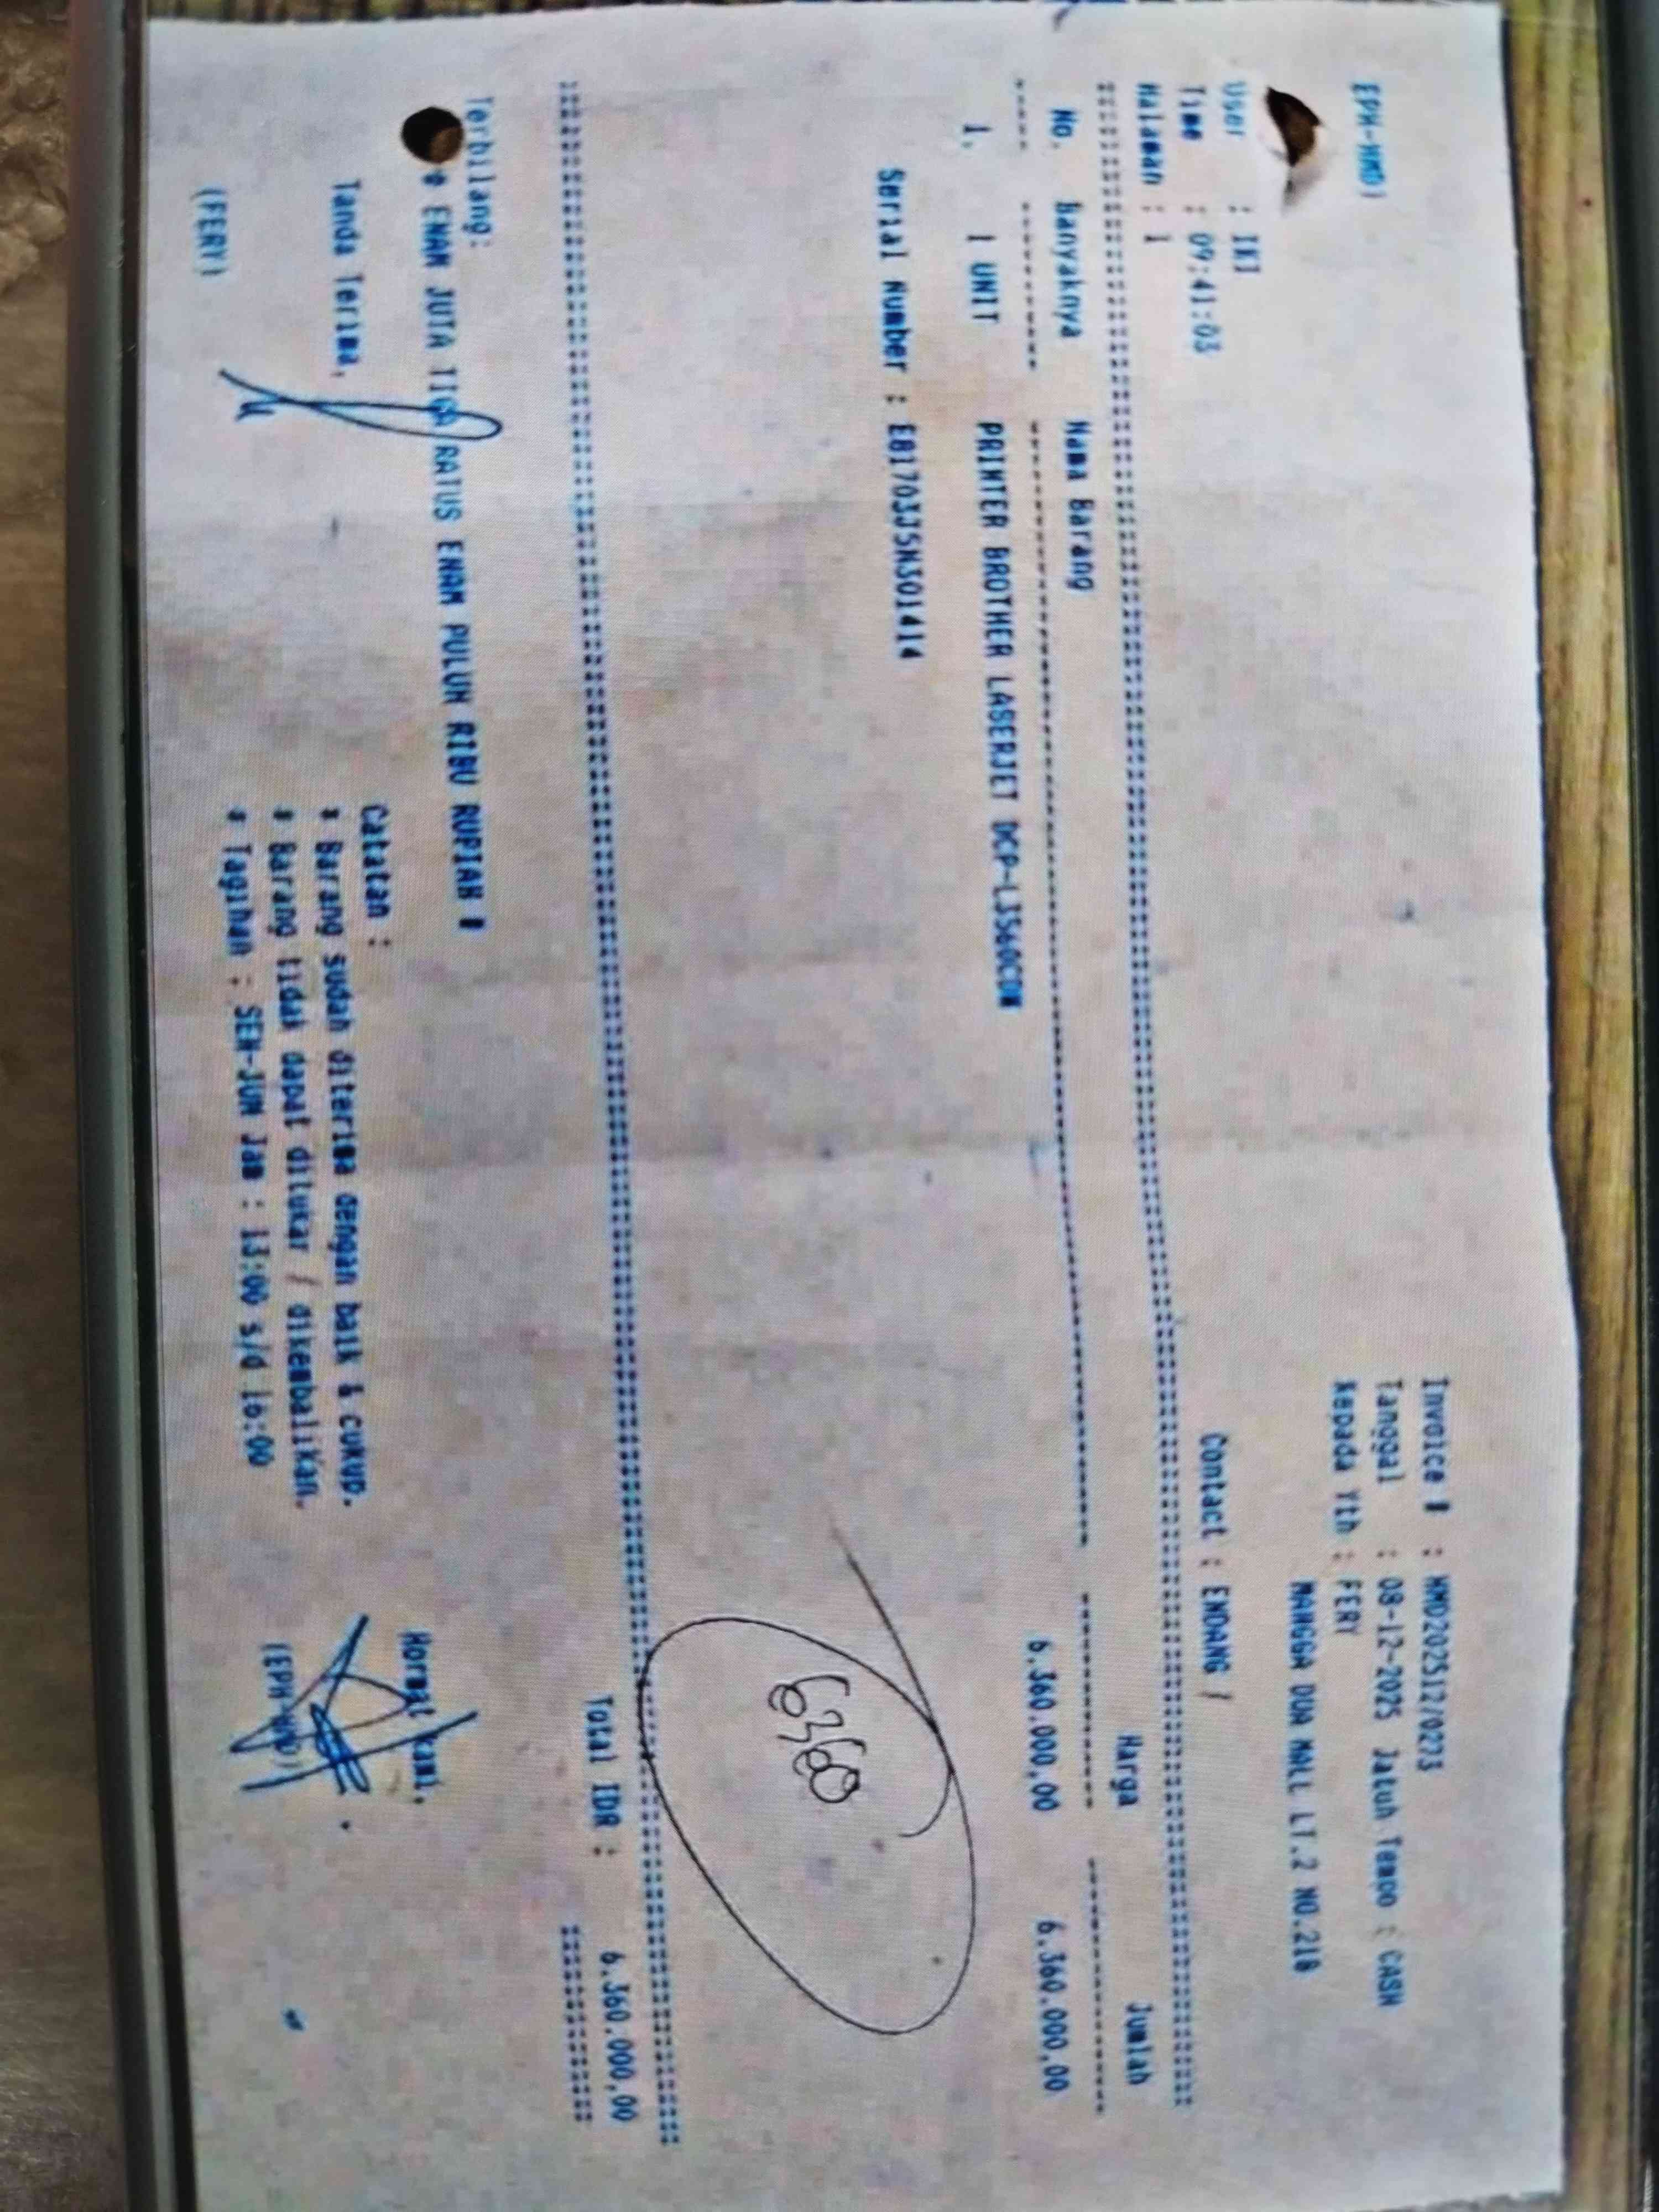 EPH-MMD)
Invoice # : MMD202512/0273
Tanggal : 08-12-2025 Jatuh Tempo : CASH
Kepada Yth : FERY
MANGGA DUA MALL LT.2 NO.21B
User : IKI
Time : 09:41:03
Halaman : 1
Contact : ENDANG /
No. Banyaknya Nama Barang Harga Jumlah
1. 1 UNIT PRINTER BROTHER LASERJET DCP-L3560CDW 6.360.000,00 6.360.000,00
Serial Number : E81703J5N301414
6360
Total IDR : 6.360.000,00
Terbilang:
# ENAM JUTA TIGA RATUS ENAM PULUH RIBU RUPIAH #
Tanda Terima,
Catatan :
* Barang sudah diterima dengan baik & cukup.
* Barang tidak dapat ditukar / dikembalikan.
* Tagihan : SEN-JUM Jam : 13:00 s/d 16:00
Hormat kami,
(FERY)
(EPH-MMD)